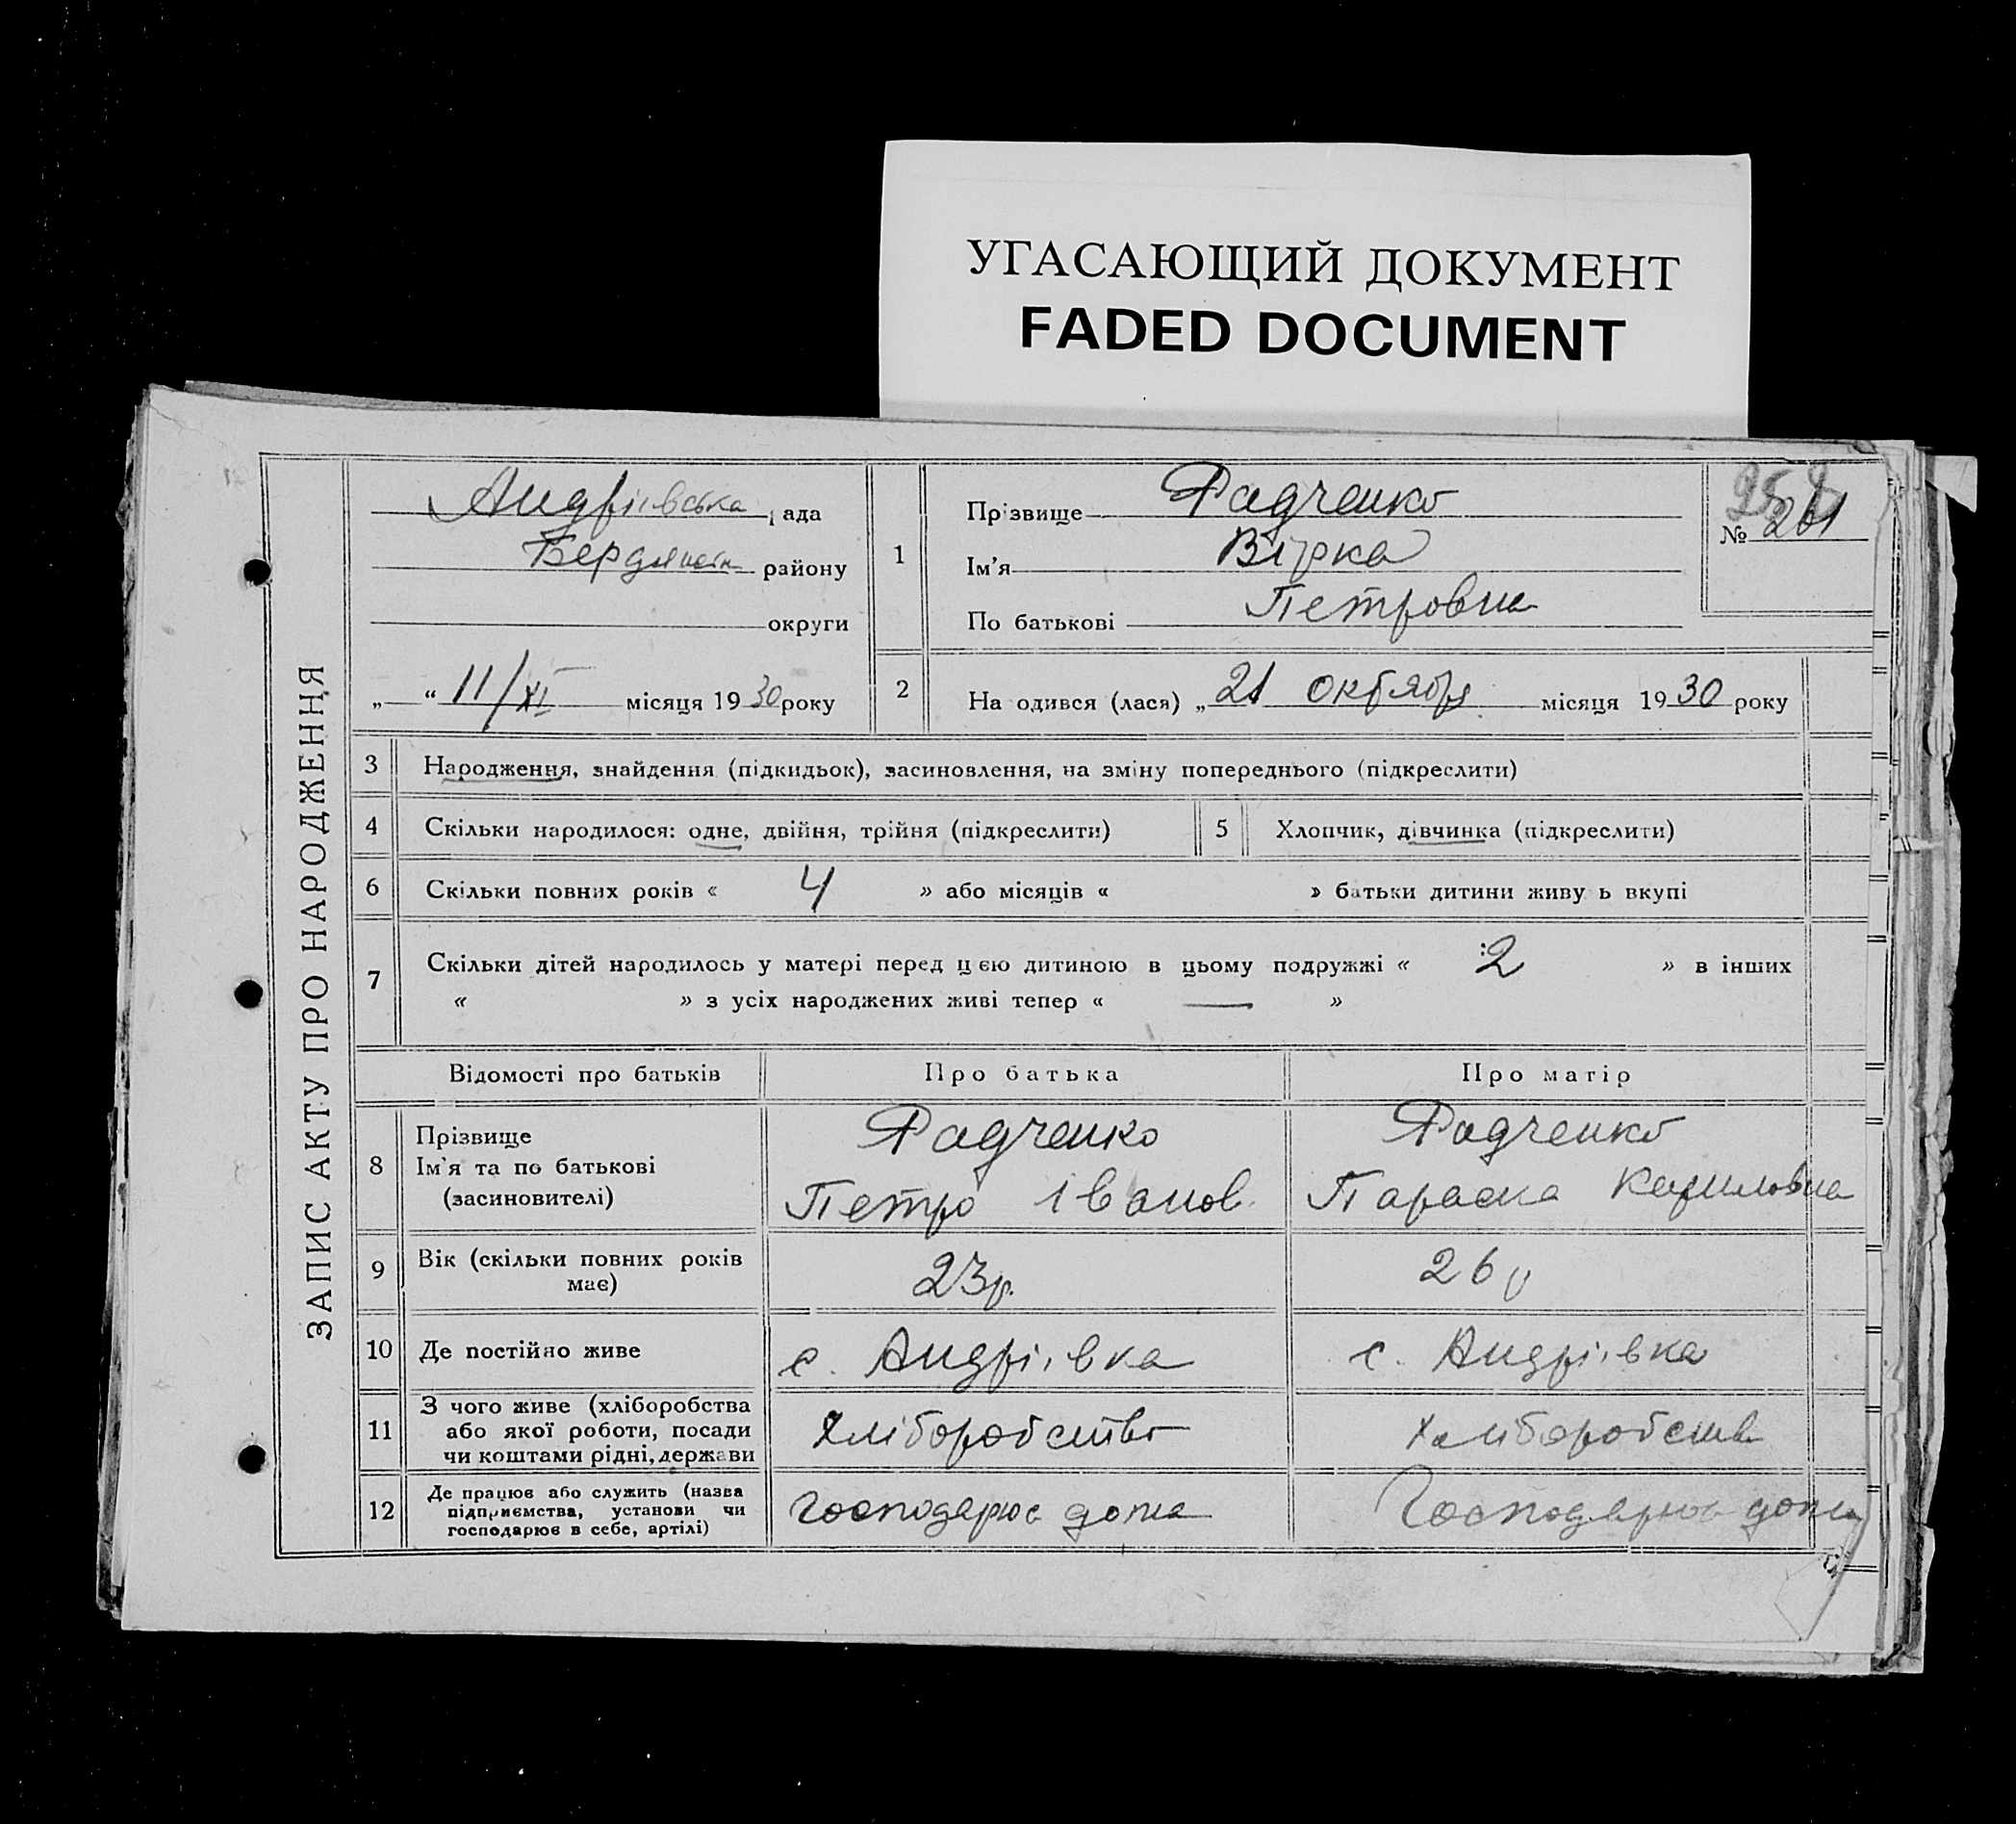 УГАСАЮЩИЙ ДОКУМЕНТ
FADED DOCUMENT
ЗАПИС АКТУ ПРО НАРОДЖЕННЯ
Андріївська рада
району
округи
„ “ 11/XI місяця 1930 року
1
Прізвище Радченко
Ім'я Вірка
По батькові Петровна
№ 261
2 На одився (лася) „21 октября місяця 1930 року
3 Народження, знайдення (підкидьок), засиновлення, на зміну попереднього (підкреслити)
4 Скільки народилося: одне, двійня, трійня (підкреслити) 5 Хлопчик, дівчинка (підкреслити)
6 Скільки повних років « 4 » або місяців « » батьки дитини живу ь вкупі
7 Скільки дітей народилось у матері перед цією дитиною в цьому подружжі « 2 » в інших
« » з усіх народжених живі тепер « — »
Відомості про батьків Про батька Про матір
8 Прізвище Радченко Радченко
Ім'я та по батькові
(засиновителі) Петро Іванов. Параска Кириловна
9 Вік (скільки повних років має) 23р. 26р
10 Де постійно живе с. Андріївка с. Андріївка
11 З чого живе (хліборобства
або якої роботи, посади
чи коштами рідні, держави
Хліборобство Хліборобств
12 Де працює або служить (назва
підприємства, установи чи
господарює в себе, артілі)
Господарює дома Господарює дома